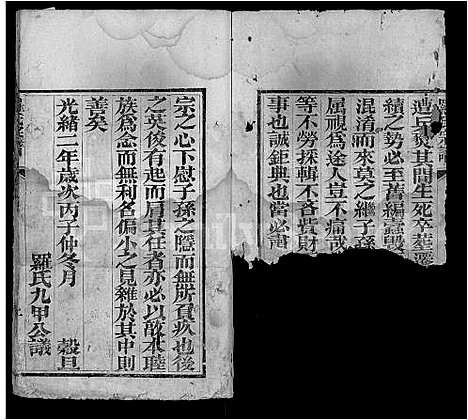 遭兵燹其間生死卒塟遷
續之勢必至舊編蠹毀
混淆而來莫之繼子孫
屈視為途人豈不痛哉
等不勞採輯不吝貲財
事也誠鉅典也當必肅
宗之心下慰子孫之隱而無所負疚也後
之英俊有起而肩其任者亦必以敦本睦
族為念而無利名偏小之見雜於其中則
善矣
光緒二年歲次丙子仲冬月　穀旦
羅氏九甲公議